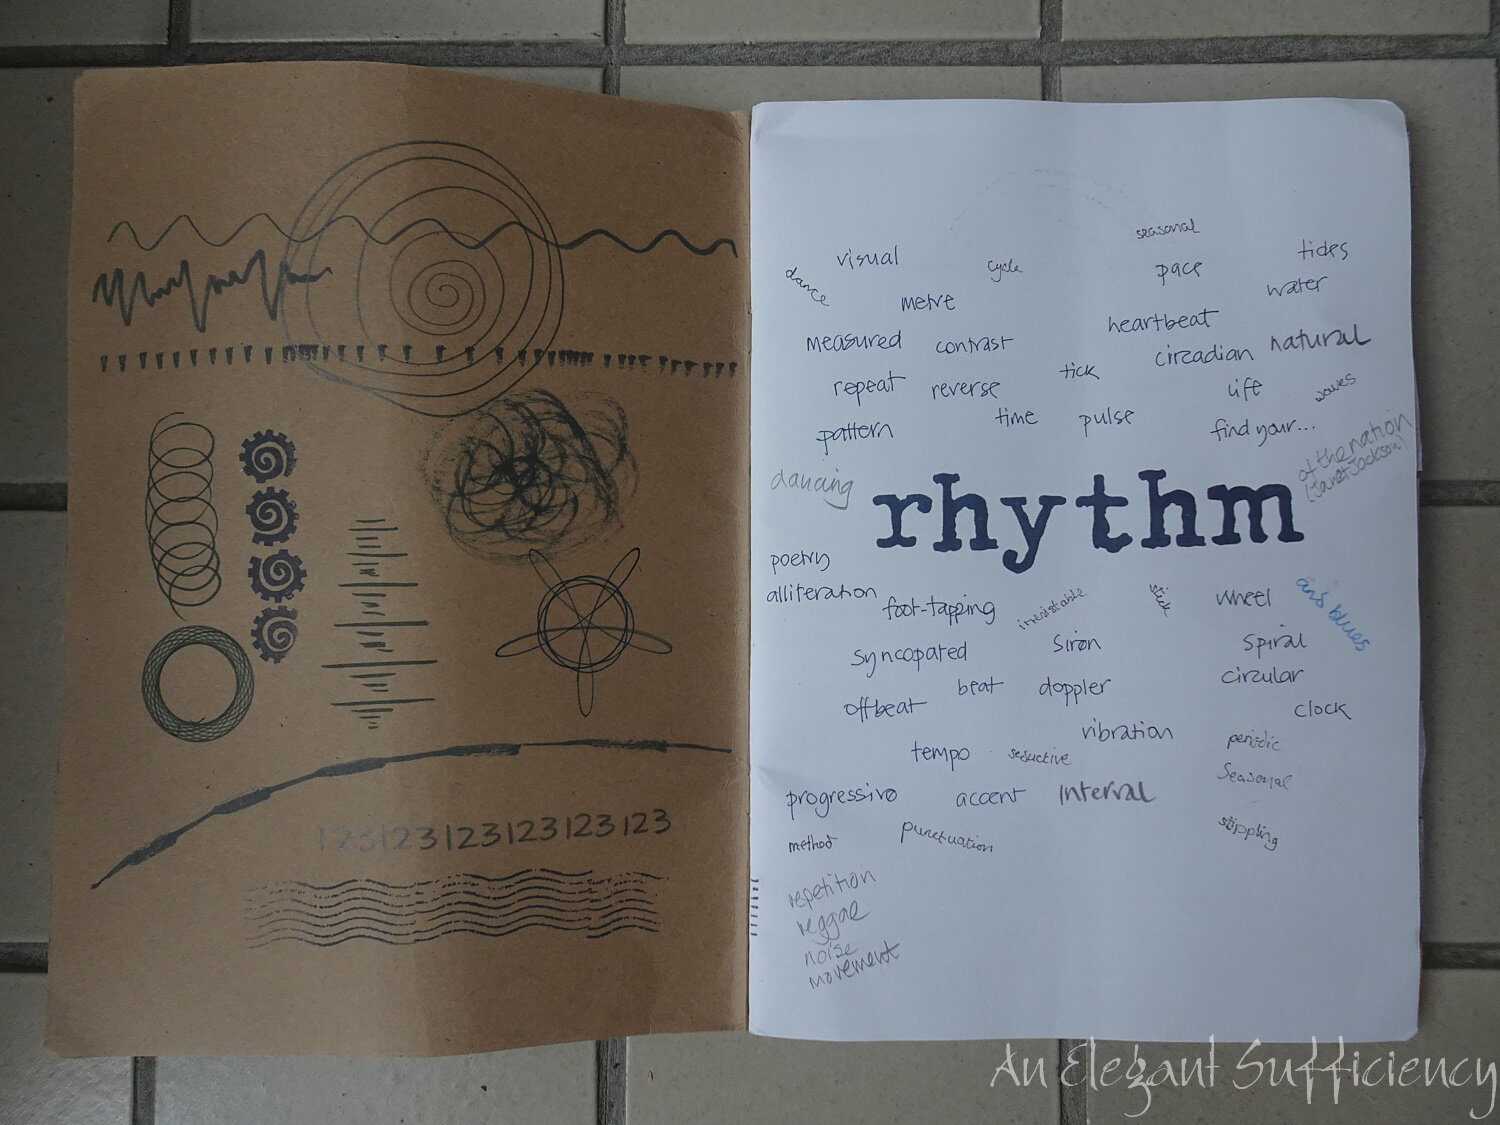 seasonal
visual
cycle
pace
tides
dance
metre
water
measured
contrast
heartbeat
circadian
natural
repeat
reverse
tick
life
waves
pattern
time
pulse
find your...
dancing
rhythm
of the nation
(Janet Jackson)
poetry
alliteration
foot-tapping
tick
wheel
and blues
syncopated
siren
spiral
offbeat
beat
doppler
circular
clock
tempo
seductive
vibration
periodic
progressive
accent
interval
seasonal
method
punctuation
repetition
reggae
noise
movement
123123123123123123
An Elegant Sufficiency